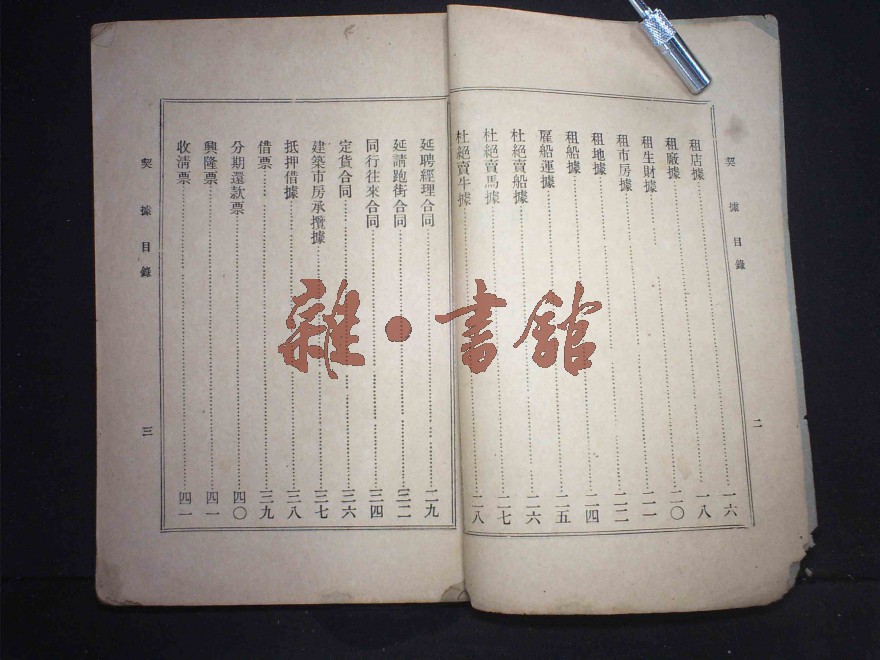 契據目錄
二
租店據……一六
租廠據……一八
租生財據……二〇
租市房據……二一
租地據……二二
租船據……二四
雇船運據……二五
杜絕賣船據……二六
杜絕賣馬據……二七
杜絕賣牛據……二八
延聘經理合同……二九
延請跑街合同……三二
同行往來合同……三四
定貨合同……三六
建築市房承攬據……三七
抵押借據……三八
借票……三九
分期還款票……四〇
興隆票……四一
收清票……四一
契據目錄
三
雜·書館